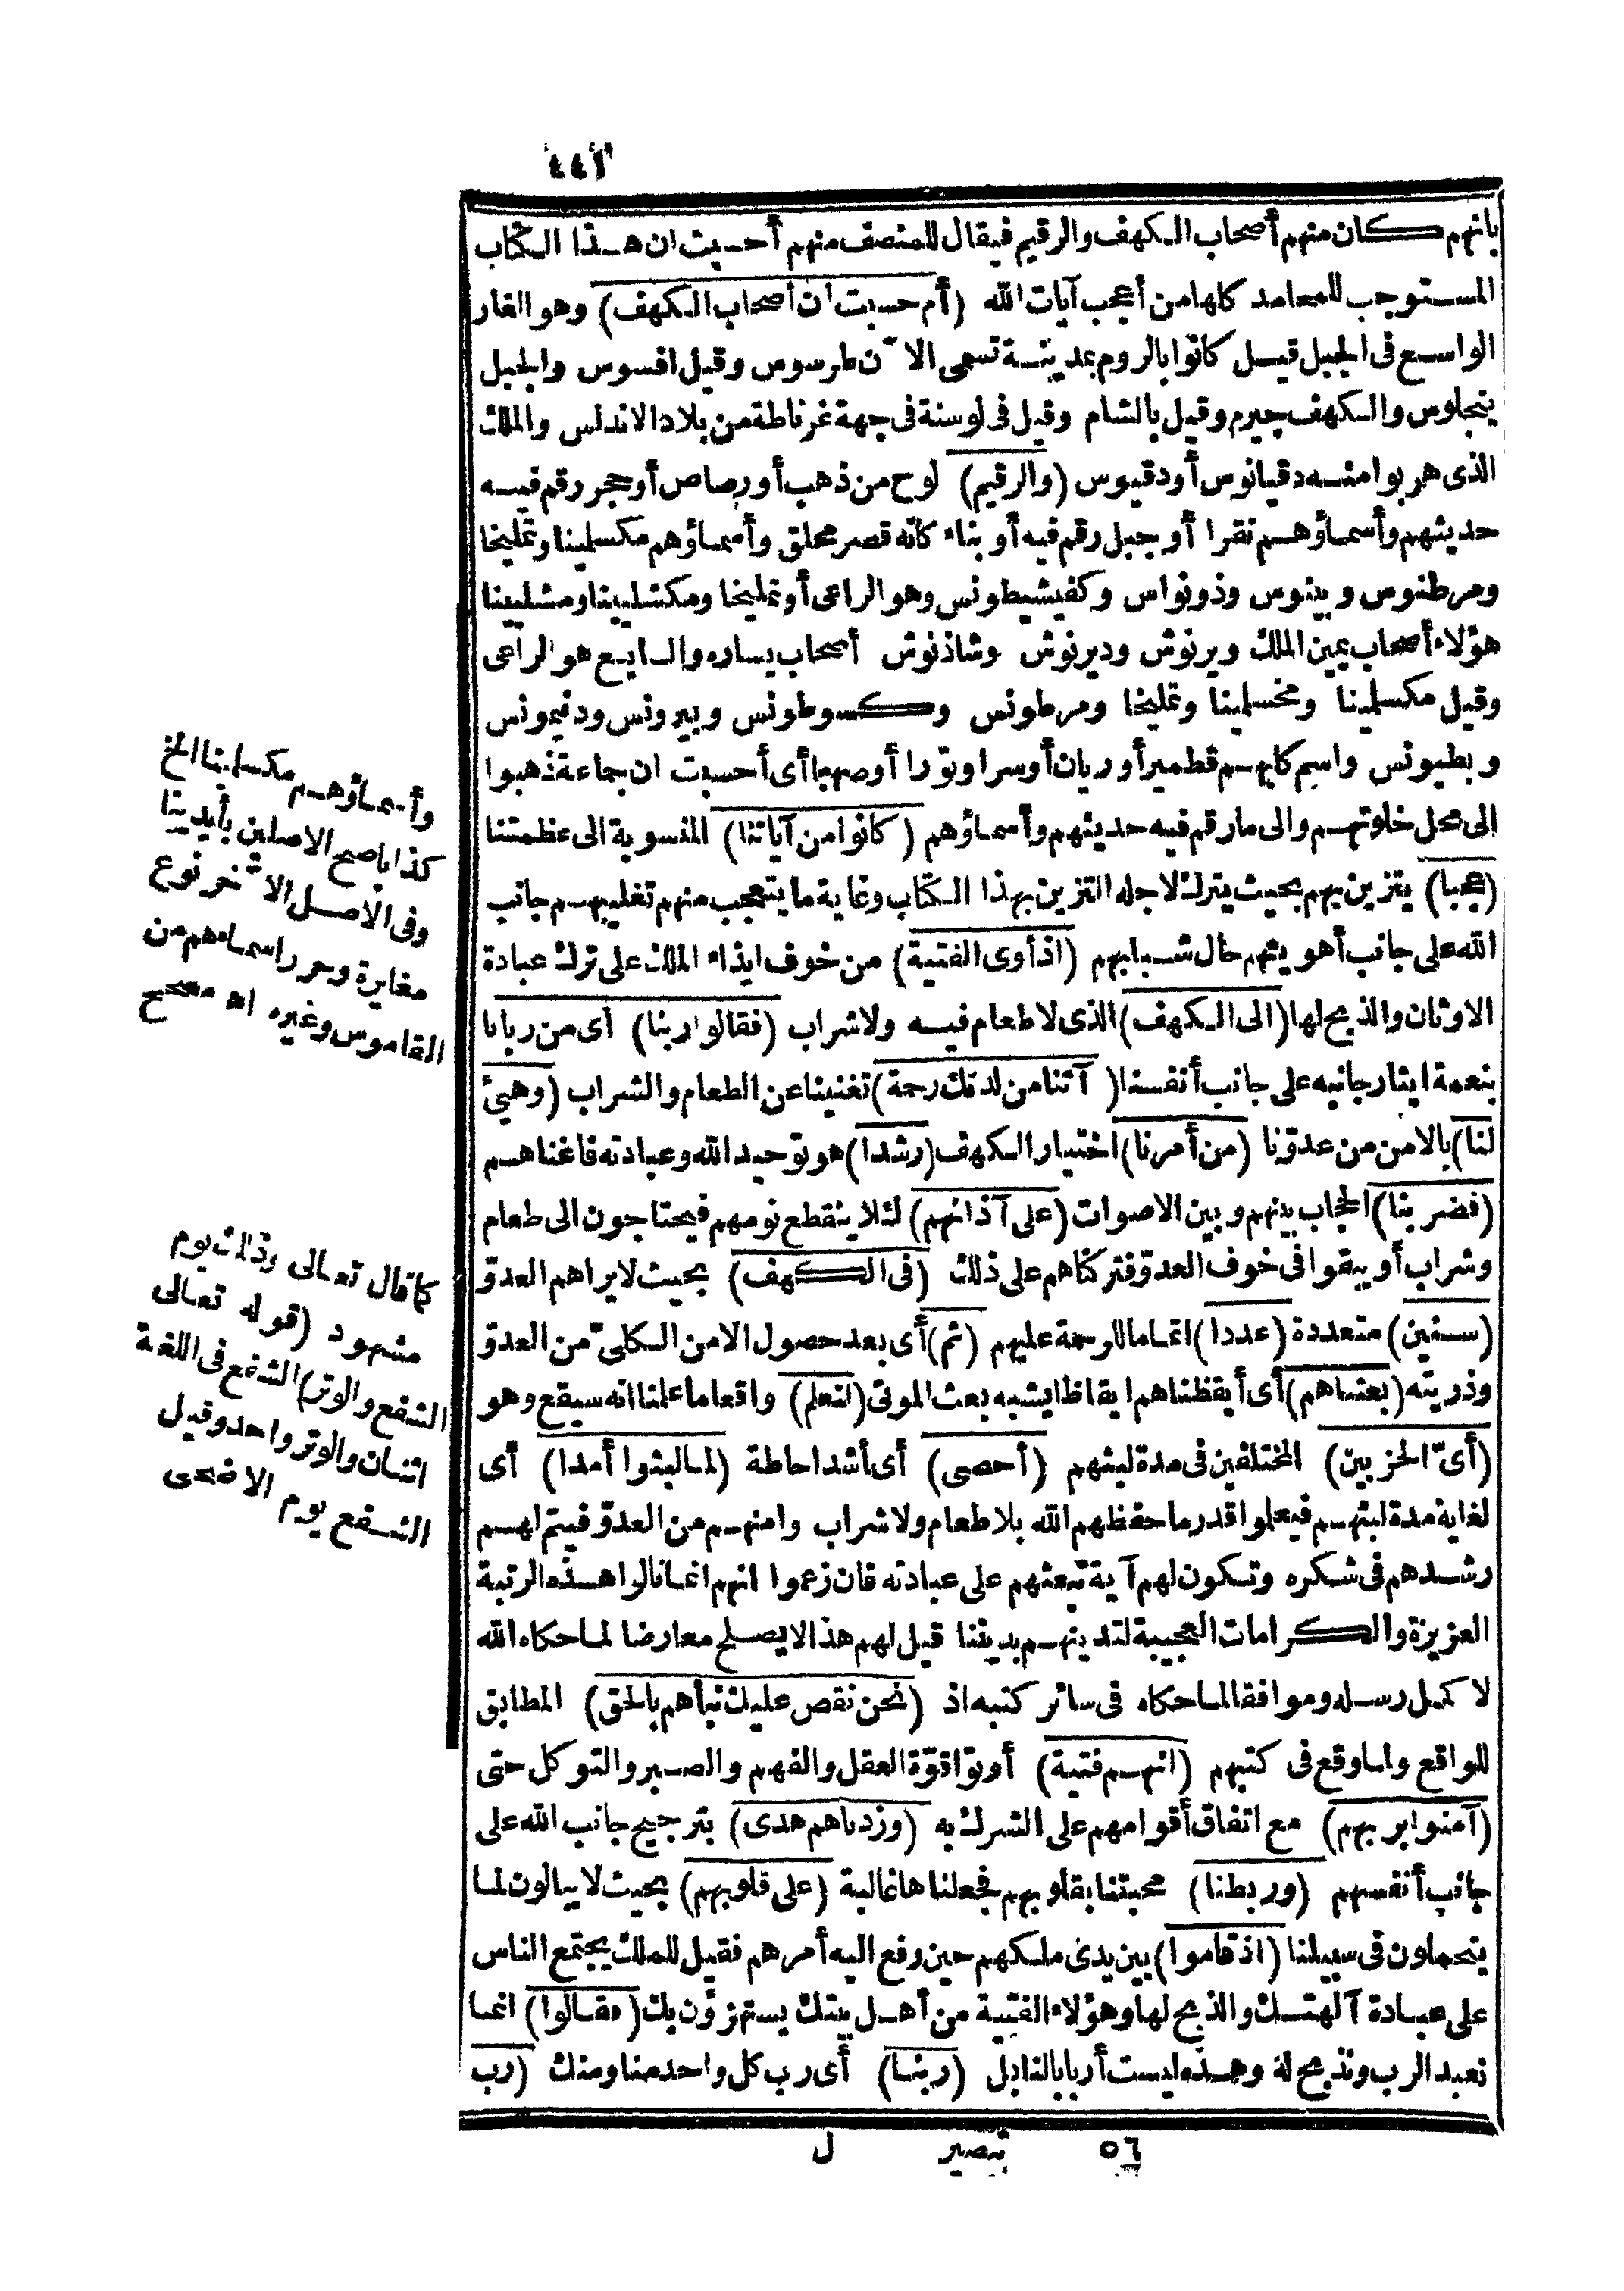 ٤٤١
بانهم كان منهم أصحاب الكهف والرقيم فيقال للمنصف منهم أحسبت ان هذا الكتاب
المستوجب للمحامد كلها من أعجب آيات الله (أم حسبت أن أصحاب الكهف) وهو الغار
الواسع فى الجبل قيل كانوا بالروم بمدينة تسمى الآن طرسوس وقيل افسوس والجبل
ينجلوس والكهف جيرم وقيل بالشام وقيل فى لوسنة فى جهة غرناطة من بلاد الاندلس والملك
الذى هربوا منه دقيانوس أو دقيوس (والرقيم) لوح من ذهب أو رصاص أو حجر رقم فيه
حديثهم وأسماؤهم نقرا أو جبل رقم فيه أو بناء كأنه قصر محلق وأسماؤهم مكسلينا وتمليخا
ومرطنوس وبينوس وذونواس وكفيشيطونس وهو الراعى أو تمليخا ومكشليينا ومشليينا
هؤلاء أصحاب يمين الملك وبرنوش ودبرنوش وشاذنوش أصحاب يساره والسابع هو الراعى
وقيل مكسلمينا ومخسلمينا وتمليخا ومرطونس وكسوطونس وبيرونس ودنيمونس
وبطيونس واسم كلبهم قطمير أو ريان أو سرا وتورا أو صهبا أى أحسبت ان جماعة ذهبوا
الى محل خلوتهم والى مارقم فيه حديثهم وأسماؤهم (كانوا من آياتنا) المنسوبة الى عظمتنا
(عجبا) يتزين بهم بحيث يترك لاجله التزين بهذا الكتاب وغاية ما يتعجب منهم تغليبهم جانب
الله على جانب أهويتهم حال شبابهم (اذ أوى الفتية) من خوف ايذاء الملك على ترك عبادة
الاوثان والذبح لها (الى الكهف) الذى لا طعام فيه ولا شراب (فقالوا ربنا) أى من ربانا
بنعمة ايثار جانبه على جانب أنفسنا (آتنا من لدنك رحمة) تغنينا عن الطعام والشراب (وهيئ
لنا) بالامن من عدوّنا (من أمرنا) اختيار الكهف (رشدا) هو توحيد الله وعبادته فاغناهم
(فضربنا) الحجاب بينهم وبين الاصوات (على آذانهم) لئلا ينقطع نومهم فيحتاجون الى طعام
وشراب أو يبقوا فى خوف العدوّ فتركناهم على ذلك (فى الكهف) بحيث لا يراهم العدوّ
(سنين) متعددة (عددا) اتماما للرحمة عليهم (ثم) أى بعد حصول الامن الكلىّ من العدوّ
وذريته (بعثناهم) أى أيقظناهم ايقاظا يشبه بعث الموتى (لنعلم) واقعا ما علمنا انه سيقع وهو
(أىّ الحزبين) المختلفين فى مدة لبثهم (أحصى) أى أشد احاطة (لما لبثوا أمدا) أى
لغاية مدة لبثهم فيعلموا قدر ما حفظهم الله بلا طعام ولا شراب وامنهم من العدوّ فيتم لهم
رشدهم فى شكره وتكون لهم آية تبعثهم على عبادته فان زعموا انهم انما نالوا هذه الرتبة
العزيزة والكرامات العجيبة لتدينهم بديننا قيل لهم هذا لا يصلح معارضا لما حكاه الله
لاكمل رسله وموافقا لما حكاه فى سائر كتبه اذ (نحن نقص عليك نبأهم بالحق) المطابق
للواقع ولما وقع فى كتبهم (انهم فتية) أوتوا قوّة العقل والفهم والصبر والتوكل حتى
(آمنوا بربهم) مع اتفاق أقوامهم على الشرك به (وزدناهم هدى) بترجيح جانب الله على
جانب أنفسهم (وربطنا) محبتنا بقلوبهم فجعلناها غالبة (على قلوبهم) بحيث لا يبالون لما
يتحملون فى سبيلنا (اذ قاموا) بين يدى ملكهم حين رفع اليه أمرهم فقيل للملك يجتمع الناس
على عبادة آلهتك والذبح لها وهؤلاء الفتية من أهل بيتك يستهزؤن بك (فقالوا) انما
نعبد الرب ونذبح له وهذه ليست أربابا لنا بل (ربنا) أى رب كل واحد منا ومنك (رب
وأسماؤهم مكسلمينا الخ
كذا باصح الاصلين بأيدينا
وفى الأصل الآخر نوع
مغايرة وحرر اسماءهم من
القاموس وغيره اه مصحح
كما قال تعالى وذلك يوم
مشهود (قوله تعالى
الشفع والوتر) الشفع فى اللغة
اثنان والوتر واحد وقيل
الشفع يوم الاضحى
٥٦ تبصير ل